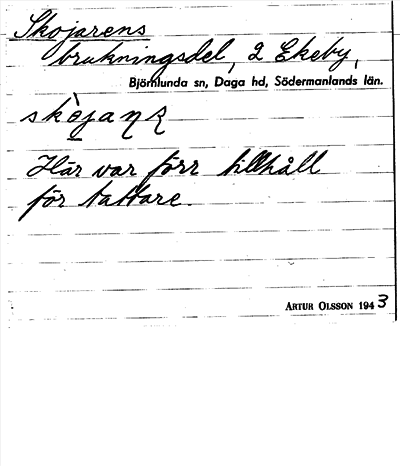 Skojarens
brukningsdel, 2 Ekeby,
Björnlunda sn, Daga hd, Södermanlands län.
Här var förr tillhåll
för tattare.
ARTUR OLSSON 1943